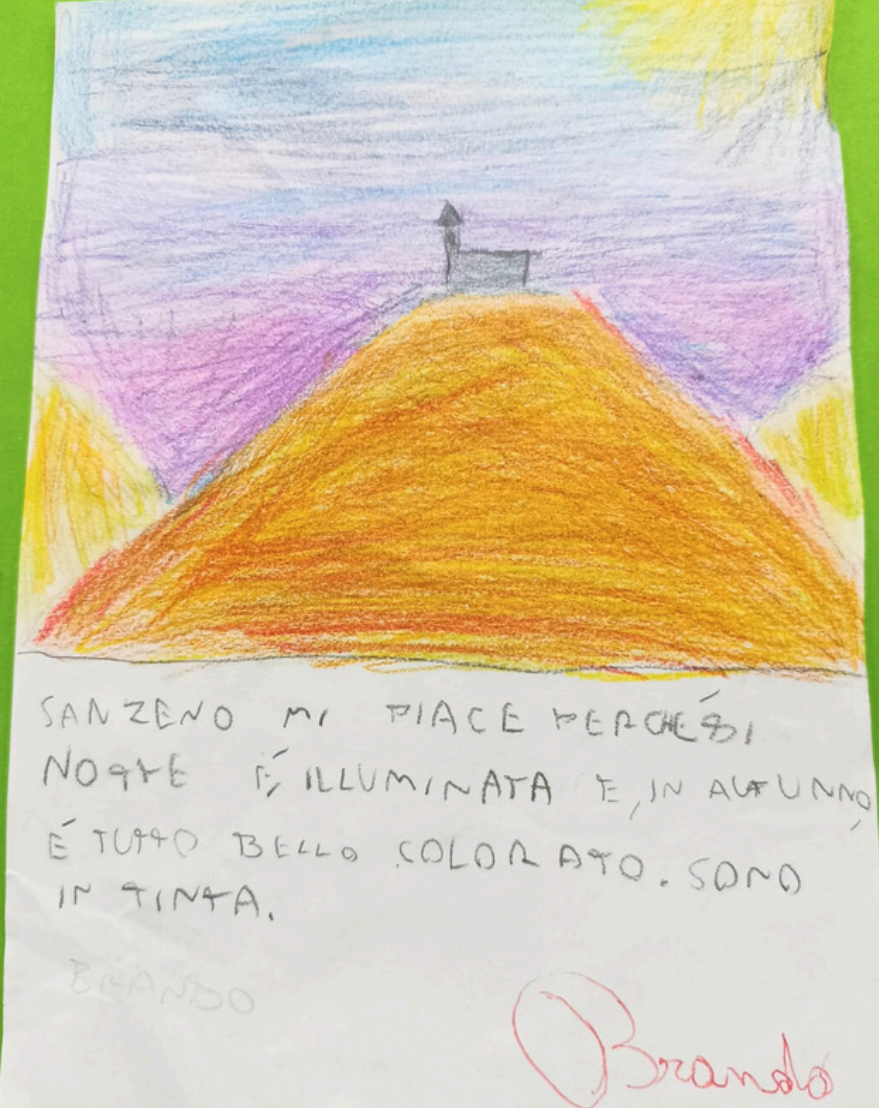 SANZENO MI PIACE PERCHÉ DI
NOTTE É ILLUMINATA E, IN AUTUNNO,
É TUTTO BELLO COLORATO. SONO
IN TINTA.
BRANDO
Brando